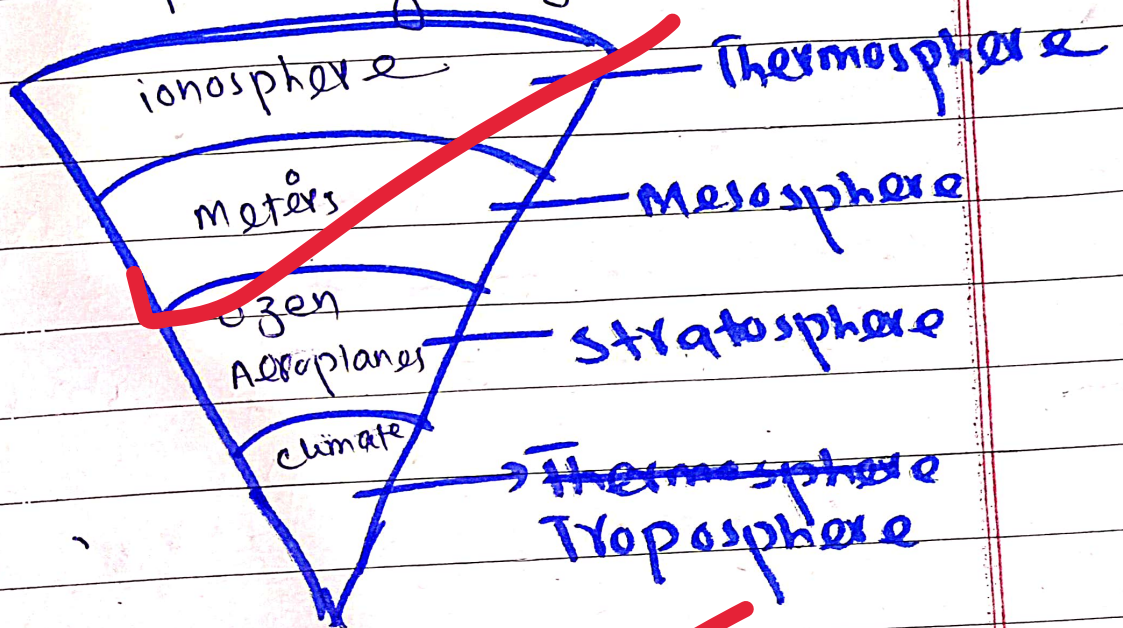 ionosphere
Thermosphere
Meters
Mesosphere
ozen
Aeroplanes
Stratosphere
climate
Thermosphere
Troposphere